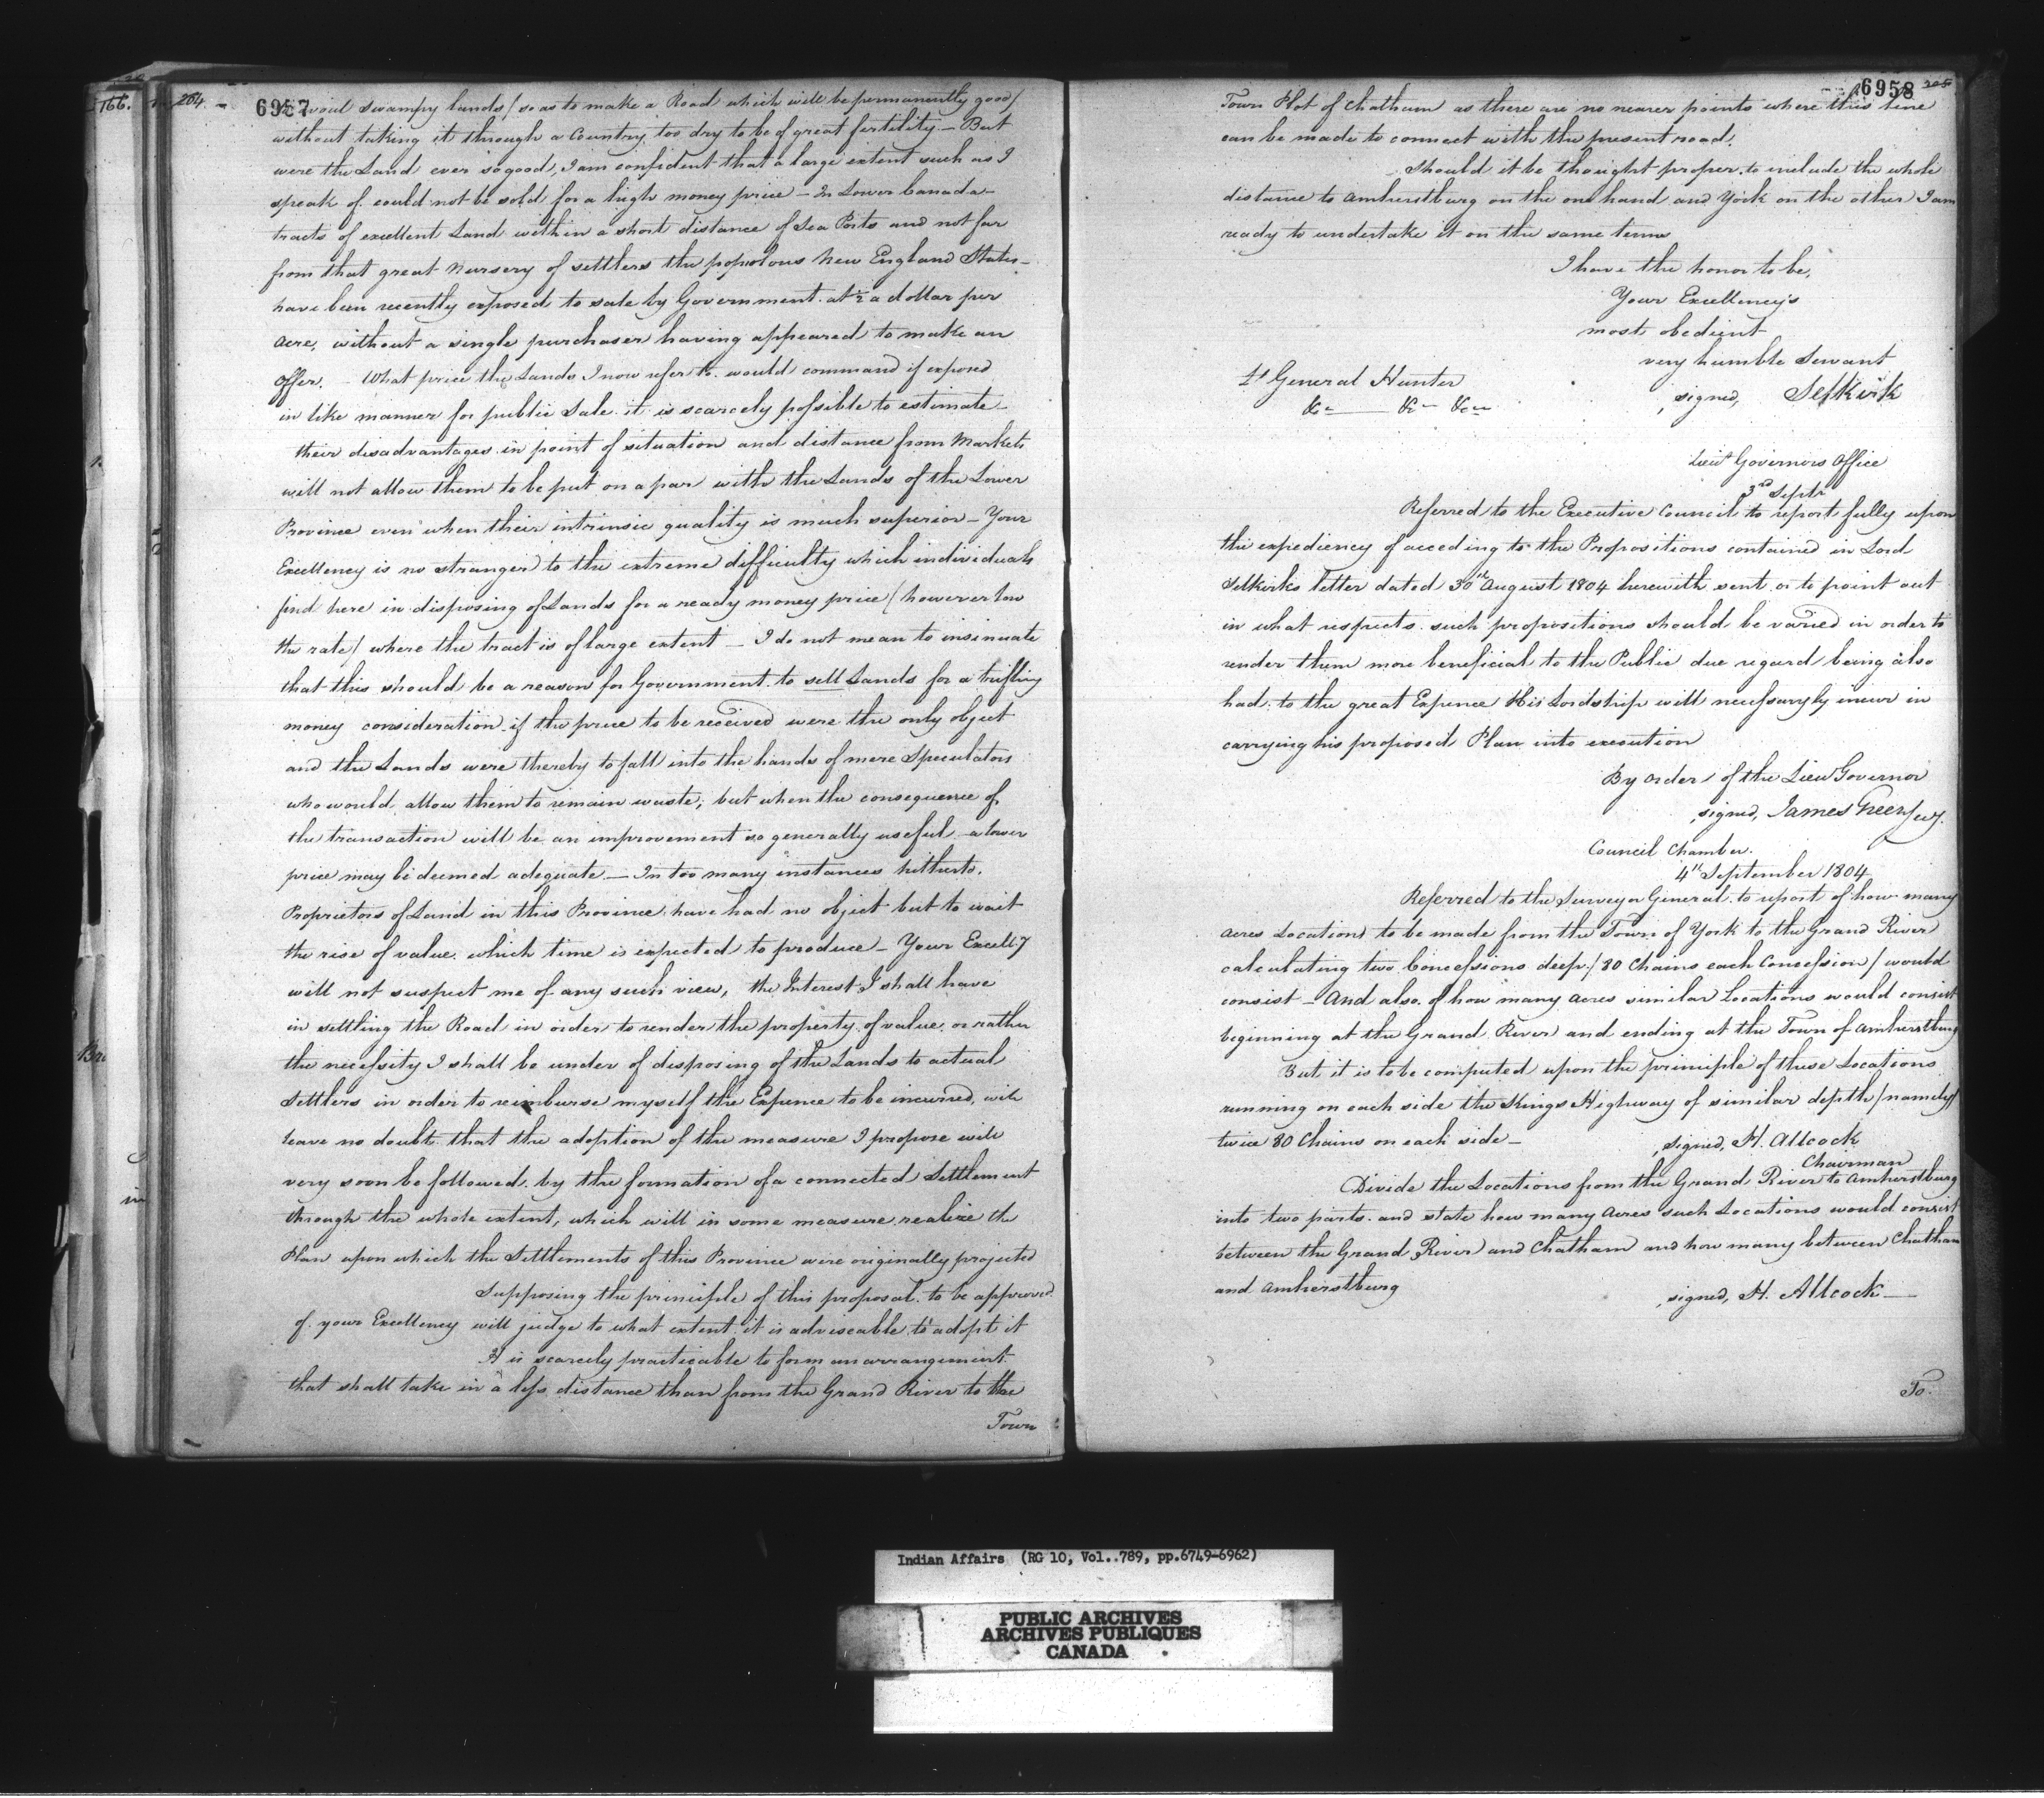 166.
264.
6957
to avoid swampy lands / so as to make a Road which will be permanently good /
without taking it through a Country too dry to be of great fertility - But
were the Land ever so good, I am confident that a large extent such as I
speak of could not be sold for a high money price - In Lower Canada
tracts of excellent Land within a short distance of Sea Ports and not far
from that great Nursery of settlers the populous New England States -
have been recently exposed to sale by Government at ½ a dollar per
Acre, without a single purchaser having appeared to make an
Offer. - What price the Lands I now refer to would command if exposed
in like manner for public Sale it is scarcely possible to estimate -
their disadvantages in point of situation and distance from Markets
will not allow them to be put on a par with the Lands of the Lower
Province even when their intrinsic quality is much superior - Your
Excellency is no stranger to the extreme difficulty which individuals
find here in disposing of Lands for a ready money price / however low
the rate / where the tract is of large extent - I do not mean to insinuate
that this should be a reason for Government to sell Lands for a trifling
money consideration if the price to be received were the only object
and the Lands were thereby to fall into the hands of mere Speculators
who would allow them to remain waste; but when the consequence of
the transaction will be an improvement so generally useful a lower
price may be deemed adequate - In too many instances hitherto,
Proprietors of Land in this Province have had no object but to wait
the rise of value which time is expected to produce - Your Excelly
will not suspect me of any such view, the Interest I shall have
in settling the Road in order to render the property of value, or rather
the necessity I shall be under of disposing of the Lands to actual
Settlers in order to reimburse myself the Expence to be incurred, will
leave no doubt that the adoption of the measure I propose will
very soon be followed by the formation of a connected Settlement
through the whole extent, which will in some measure realize the
Plan upon which the Settlements of this Province were originally projected
Supposing the principle of this proposal to be approved
of your Excellency will judge to what extent it is adviseable to adopt it
It is scarcely practicable to form an arrangement
that shall take in a less distance than from the Grand River to the
Town
6958
265
Town Plot of Chatham as there are no nearer points where this line
can be made to connect with the present road.
Should it be thought proper to include the whole
distance to Amherstburg on the one hand and York on the other I am
ready to undertake it on the same terms
I have the honor to be,
Your Excellency's
most obedient
very humble Servant
Lt General Hunter
signed, Selkirk
&c &c &c
Lieut Governors Office
3rd Septr
Referred to the Executive Council to report fully upon
the expediency of acceding to the Propositions contained in Lord
Selkirks letter dated 30th August 1804 herewith sent or to point out
in what respects such propositions should be varied in order to
render them more beneficial to the Public due regard being also
had to the great Expence His Lordship will necessaryly incur in
carrying his proposed Plan into execution
By order of the Lieu Governor
signed, James Green Secy.
Council Chamber.
4th September 1804
Referred to the Surveyor General to report of how many
acres Locations to be made from the Town of York to the Grand River
calculating two Concessions deep / 80 Chains each Concession / would
consist - And also of how many acres similar Locations would consist
beginning at the Grand River and ending at the Town of Amherstburg
But it is to be computed upon the principle of these Locations
running on each side the Kings Highway of similar depth / namely /
twice 80 Chains on each side -
signed, H. Allcock
Chairman
Divide the Locations from the Grand River to Amherstburg
into two parts and state how many Acres such Locations would consist
between the Grand River and Chatham and how many between Chatham
and Amherstburg
signed, H. Allcock
To
Indian Affairs (RG 10, Vol..789, pp.6749-6962)
PUBLIC ARCHIVES
ARCHIVES PUBLIQUES
CANADA